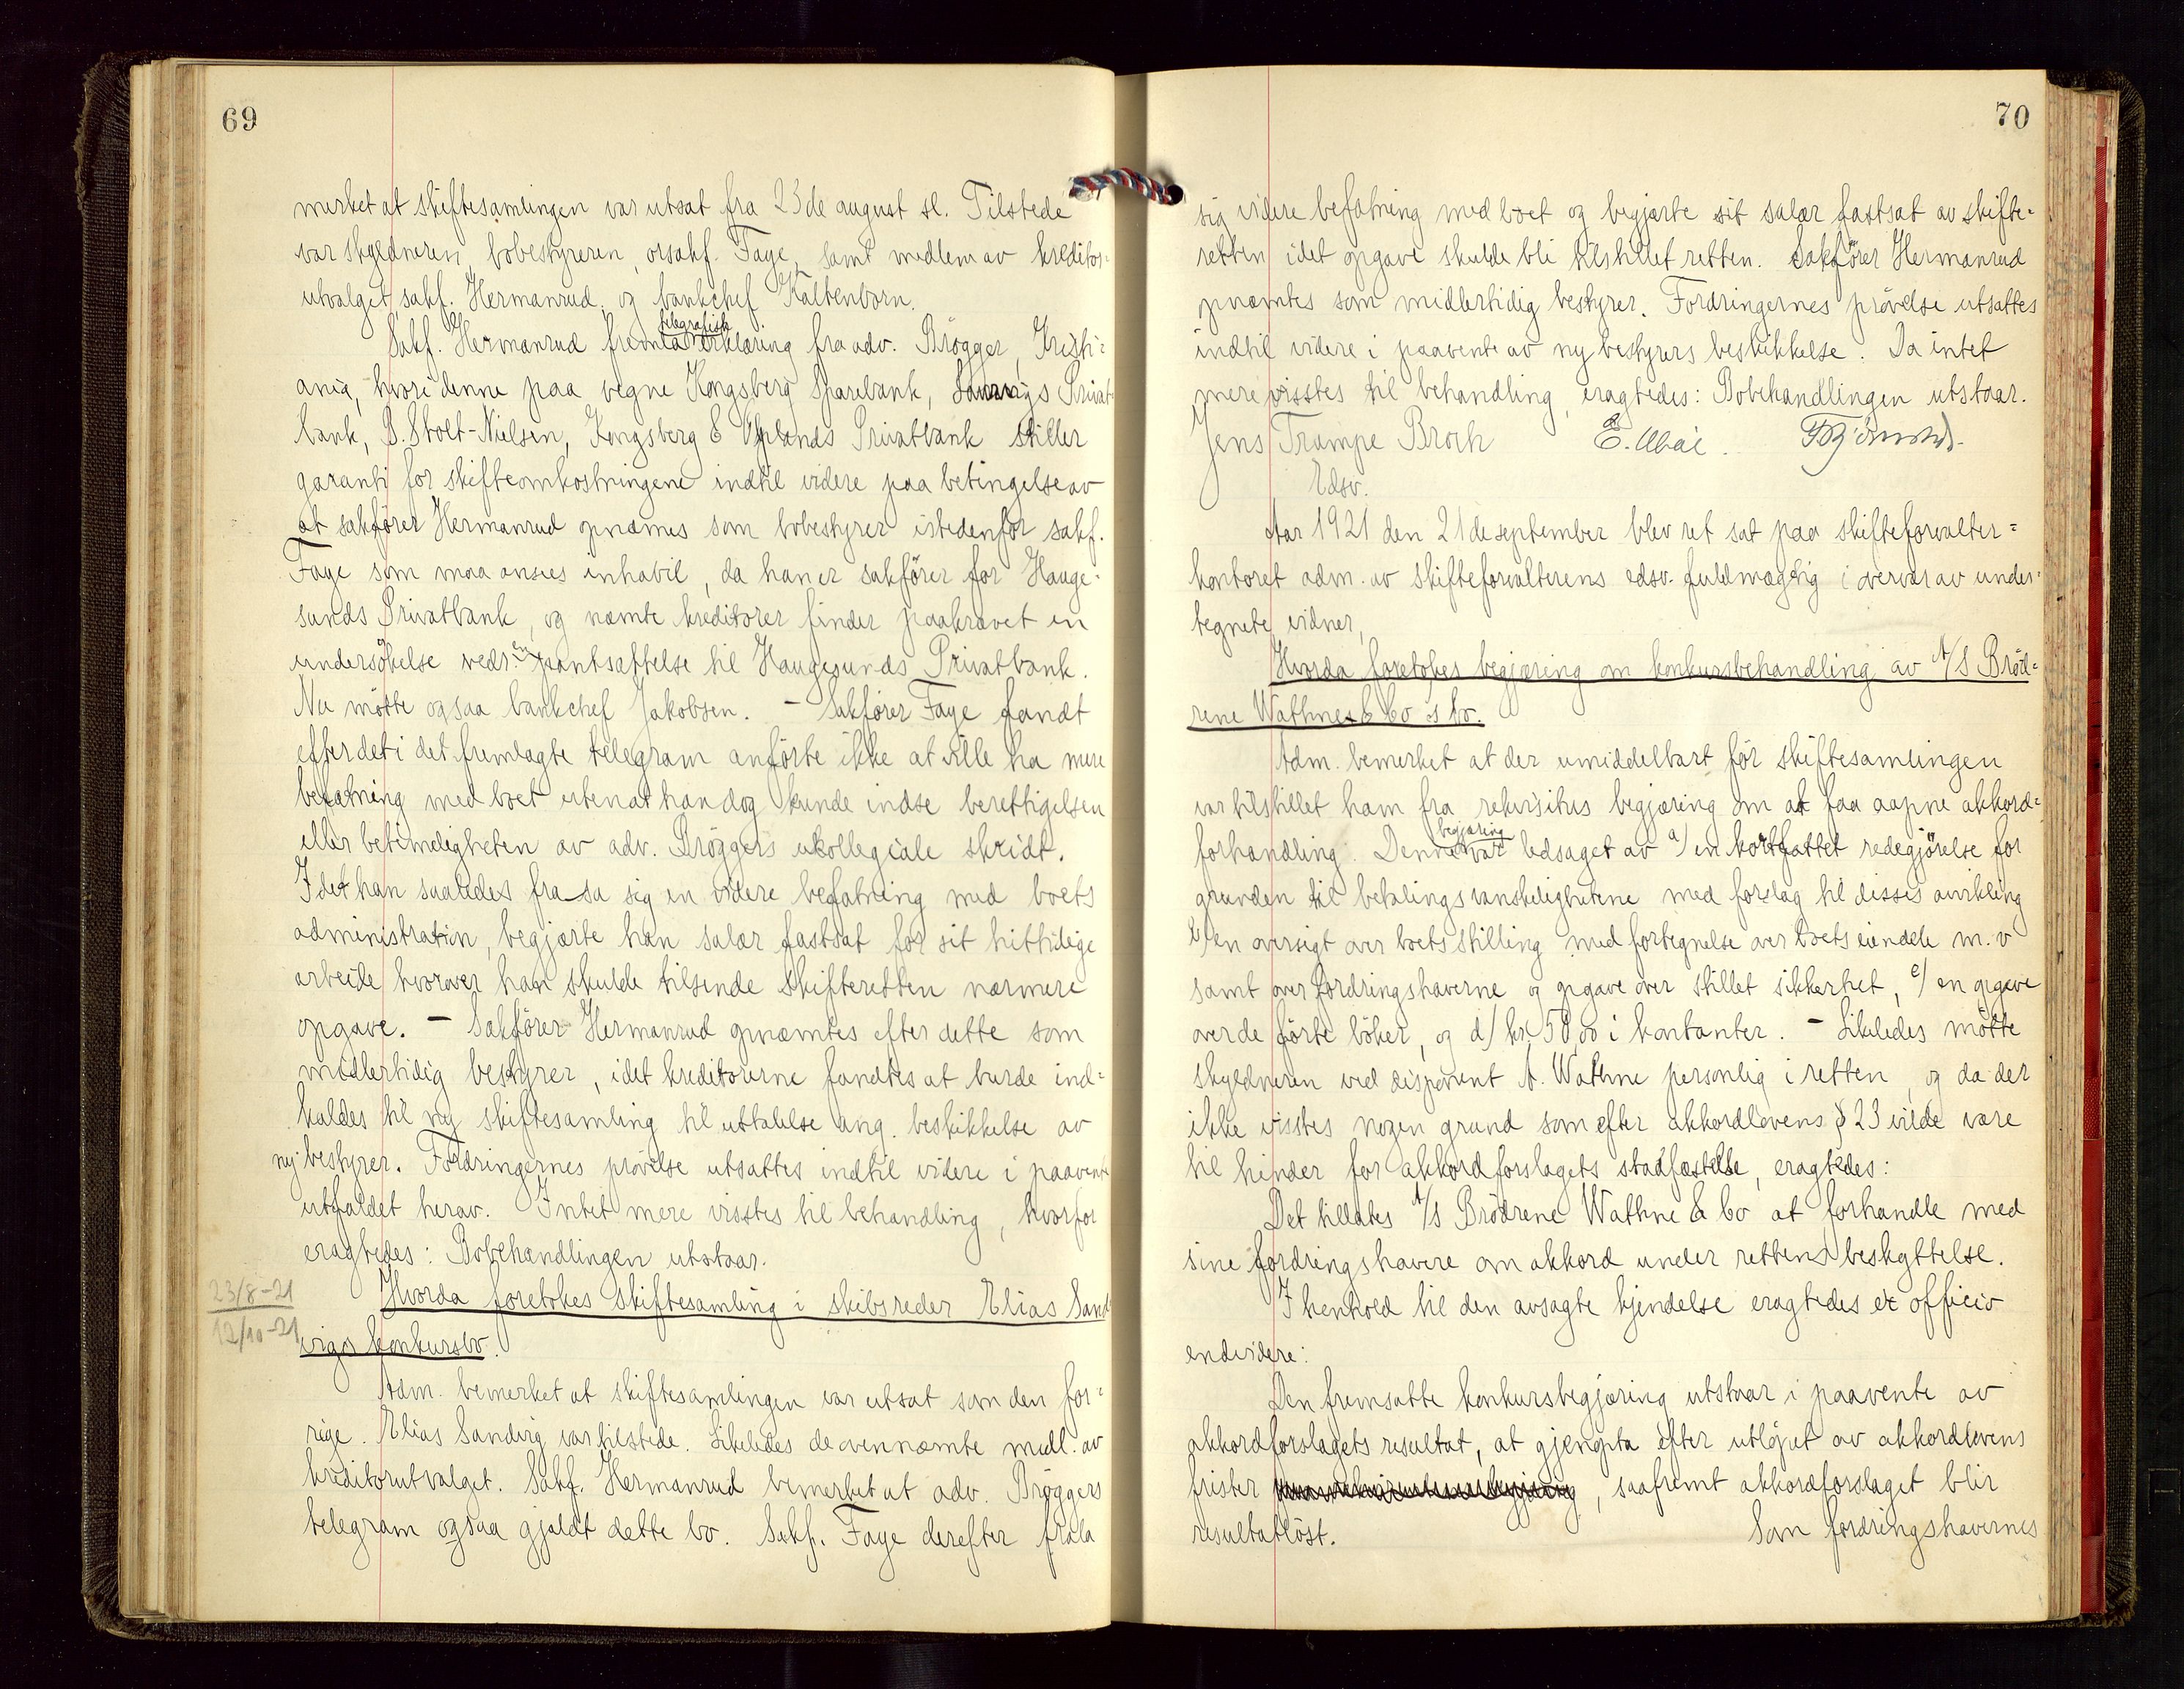 69
merket at skiftesamlingen var utsat fra 23de august sl. Tilstede
var skyldneren, bobestyreren, orsakf. Faye, samt medlem av kreditor-
utvalget, sakf. Hermanrud, og bankchef Kaltenborn.
Sakf. Hermanrud fremla telegrafisk erklæring fra adv. Brøgger, Kristi=
ania, hvori denne paa vegne Kongsberg Sparebank, Privat-
bank, B. Stolt-Nielsen, Kongsberg & Oplands Privatbank stiller
garanti for skifteomkostningene indtil videre paa betingelse av
at sakfører Hermanrud opnævnes som bobestyrer istedenfor sakf.
Faye som maa ansees inhabil, da han er sakfører for Hauge-
sunds Privatbank, og nævnte kreditorer finder paakrævet en
undersökelse vedr. en pantsættelse til Haugesunds Privatbank.
Nu mötte ogsaa bankchef Jakobsen. – Sakfører Faye fandt
efter det i det fremlagte telegram anförte ikke at ville ha mere
befatning med boet uten at han dog kunde indse berettigelsen
eller betimeligheten av adv. Brøggers ukollegiale skridt.
Idet han saaledes frasa sig en videre befatning med boets
administration, begjærte han salær fastsat for sit hittidige
arbeide hvorover han skulde tilsende skifteretten nærmere
opgave. – Sakfører Hermanrud opnævntes efter dette som
midlertidig bestyrer, idet kreditorerne fandtes at burde ind=
kaldes til ny skiftesamling til uttalelse ang. beskikkelse av
ny bestyrer. Fordringernes prövelse utsattes indtil videre i paavente
utfaldet herav. Intet mere visstes til behandling, hvorfor
eragtedes: Bobehandlingen utstaar.
23/8-21
12/10-21
Hvorda foretokes skiftesamling i skibsreder Elias Sand-
vigs konkursbo.
Adm. bemerket at skiftesamlingen var utsat som den for=
rige. Elias Sandvig var tilstede. Likeledes de ovennævnte medl. av
kreditorutvalget. Sakf. Hermanrud bemerket at adv. Brøggers
telegram ogsaa gjaldt dette bo. Sakf. Faye derefter frala
70
sig videre befatning med boet og begjærte sit salær fastsat av skifte=
retten idet opgave skulde bli tilstillet retten. Sakförer Hermanrud
opnævntes som midlertidig bestyrer. Fordringernes prövelse utsattes
indtil videre i paavente av ny bestyrers beskikkelse. Da intet
mere visstes til behandling, eragtedes: Bobehandlingen utstaar.
Jens Trampe Broch
Edsv.
Aar 1921 den 21de september blev ret sat paa skifteforvalter=
kontoret adm. av skifteforvalterens edsv. fuldmægtig i overvær av under-
tegnete vidner,
Hvorda foretokes begjæring om konkursbehandling av A/S Bröd=
rene Wathnes & Co's bo.
Adm. bemerket at der umiddelbart för skiftesamlingen
var tilstillet ham fra rekvisitus begjæring om at faa aapne akkord=
forhandling. Denne begjæring var ledsaget av a/ en kortfattet redegjörelse for
grunden til betalingsvanskelighetene med forslag til disses avvikling
b/ en oversigt over boets stilling med fortegnelse over boets eiendele m.v
samt over fordringshaverne og opgave over stillet sikkerhet, c/ en opgave
over de förte böker, og d/ kr. 50 00 i kontanter. – Likeledes mötte
skyldneren ved disponent A. Wathne personlig i retten, og da der
ikke visstes nogen grund som efter akkordlovens § 23 vilde være
til hinder for akkordforslagets stadfæstelse, eragtedes:
Det tillates A/S Brödrene Wathne & Co at forhandle med
sine fordringshavere om akkord under rettens beskyttelse.
I henhold til den avsagte kjendelse eragtedes ex officio
endvidere:
Den fremsatte konkursbegjæring utstaar i paavente av
akkordforslagets resultat, at gjenopta efter utlöpet av akkordlovens
frister, saafremt akkordforslaget blir
resultatlöst.
Som fordringshavernes